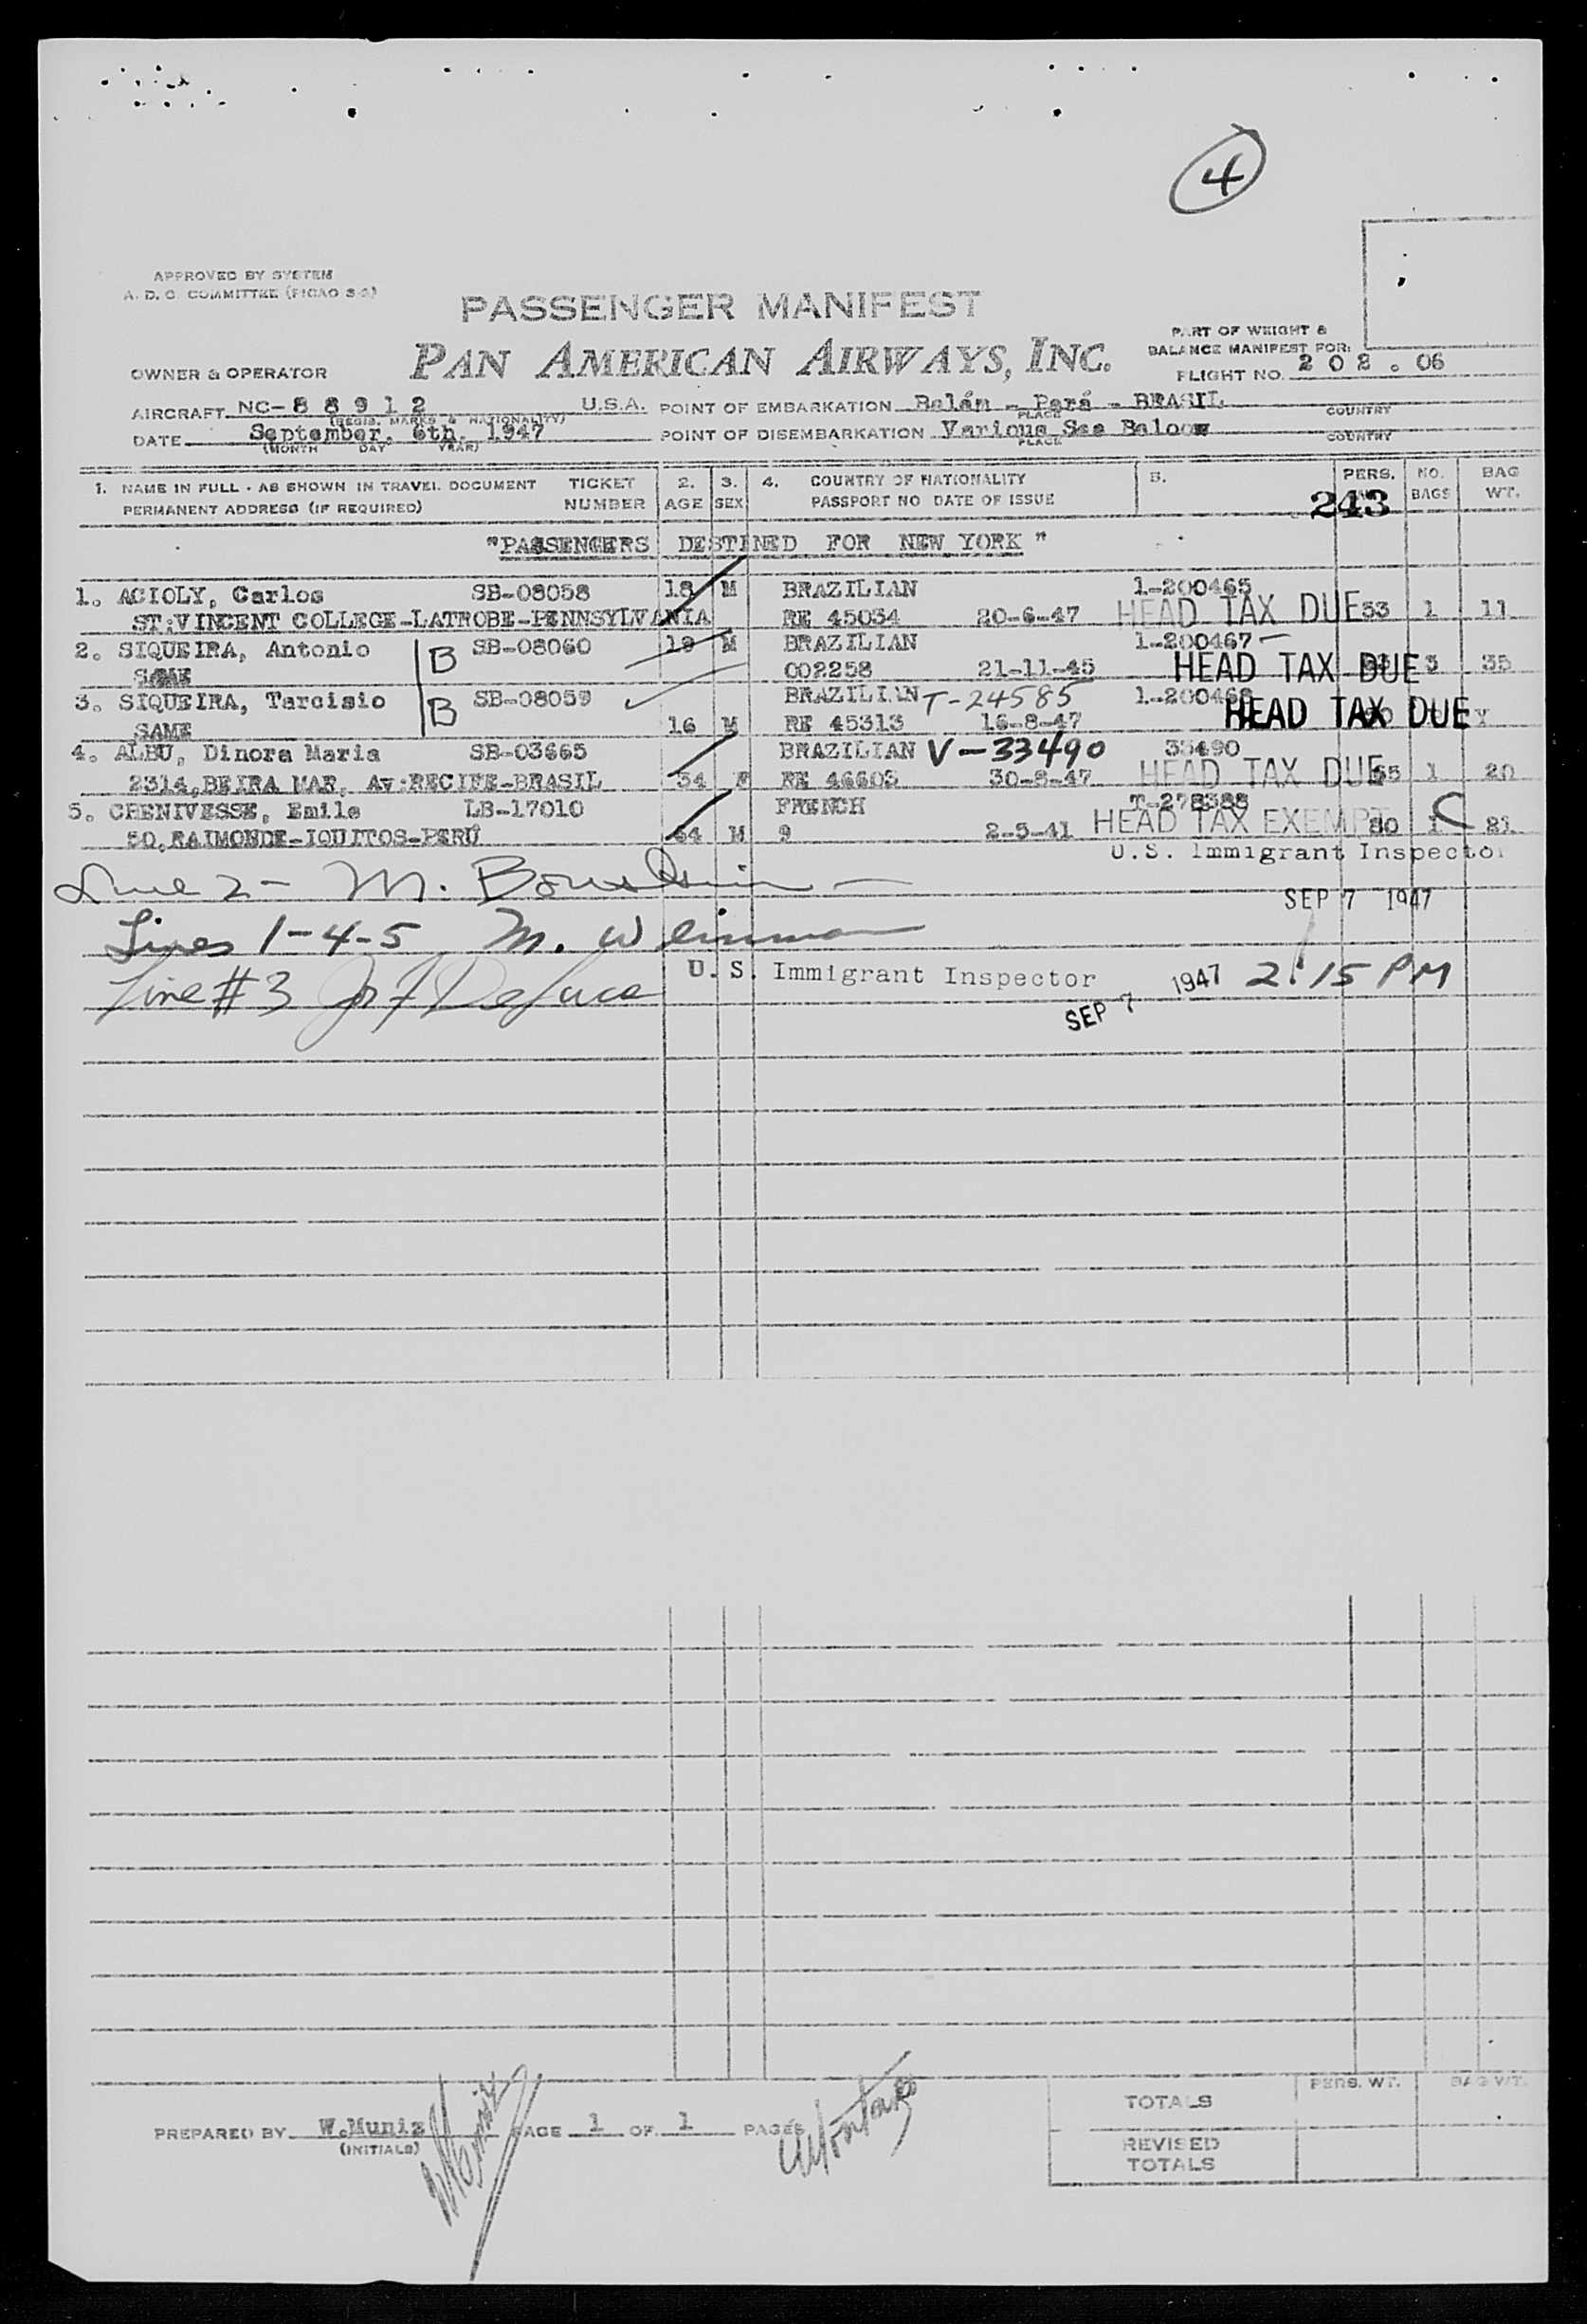 4
APPROVED BY SYSTEM
A. D. C. COMMITTEE (PICAO S-2)
PASSENGER MANIFEST
PAN AMERICAN AIRWAYS, INC.
PART OF WEIGHT &
BALANCE MANIFEST FOR:
OWNER & OPERATOR
FLIGHT NO. 202.06
AIRCRAFT NC-88912 U.S.A. POINT OF EMBARKATION Belém - Pará - BRASIL
(REGIS. MARKS & NATIONALITY) PLACE COUNTRY
DATE September, 6th. 1947 POINT OF DISEMBARKATION Various See Baloow
(MONTH DAY YEAR) PLACE COUNTRY
1. NAME IN FULL - AS SHOWN IN TRAVEL DOCUMENT TICKET 2. 3. 4. COUNTRY OF NATIONALITY 5. PERS. NO. BAG
PERMANENT ADDRESS (IF REQUIRED) NUMBER AGE SEX PASSPORT NO DATE OF ISSUE 243 BAGS WT.
"PASSENGERS DESTINED FOR NEW YORK"
1. ACIOLY, Carlos SB-08058 18 M BRAZILIAN 1-200465
ST:VINCENT COLLEGE-LATROBE-PENNSYLVANIA RE 45034 20-6-47 HEAD TAX DUE 53 1 11
2. SIQUEIRA, Antonio B SB-08060 19 M BRAZILIAN 1-200467
SAME 002258 21-11-45 HEAD TAX DUE 3 35
3. SIQUEIRA, Tarcisio B SB-08059 BRAZILIAN T-24585
SAME 16 M RE 45313 16-8-47 HEAD TAX DUE
4. ALBU, Dinora Maria SB-03665 BRAZILIAN V-33490 33490
2314, BEIRA MAR, Av:RECIFE-BRASIL 54 F RE 46603 30-8-47 HEAD TAX DUE 65 1 20
5. CHENIVESSE, Emile LB-17010 FRENCH T-278388
50, RAIMONDE-IQUITOS-PERÚ 64 M 9 2-5-41 HEAD TAX EXEMPT 80 1 C 21
U.S. Immigrant Inspector
Line 2 - M.
SEP 7 1947
Lines 1-4-5 M. Weinman
Line #3 U. S. Immigrant Inspector SEP 7 1947 2:15 PM
PERS. WT. BAG WT.
TOTALS
PREPARED BY W.Muniz PAGE 1 OF 1 PAGES
(INITIALS)
REVISED
TOTALS